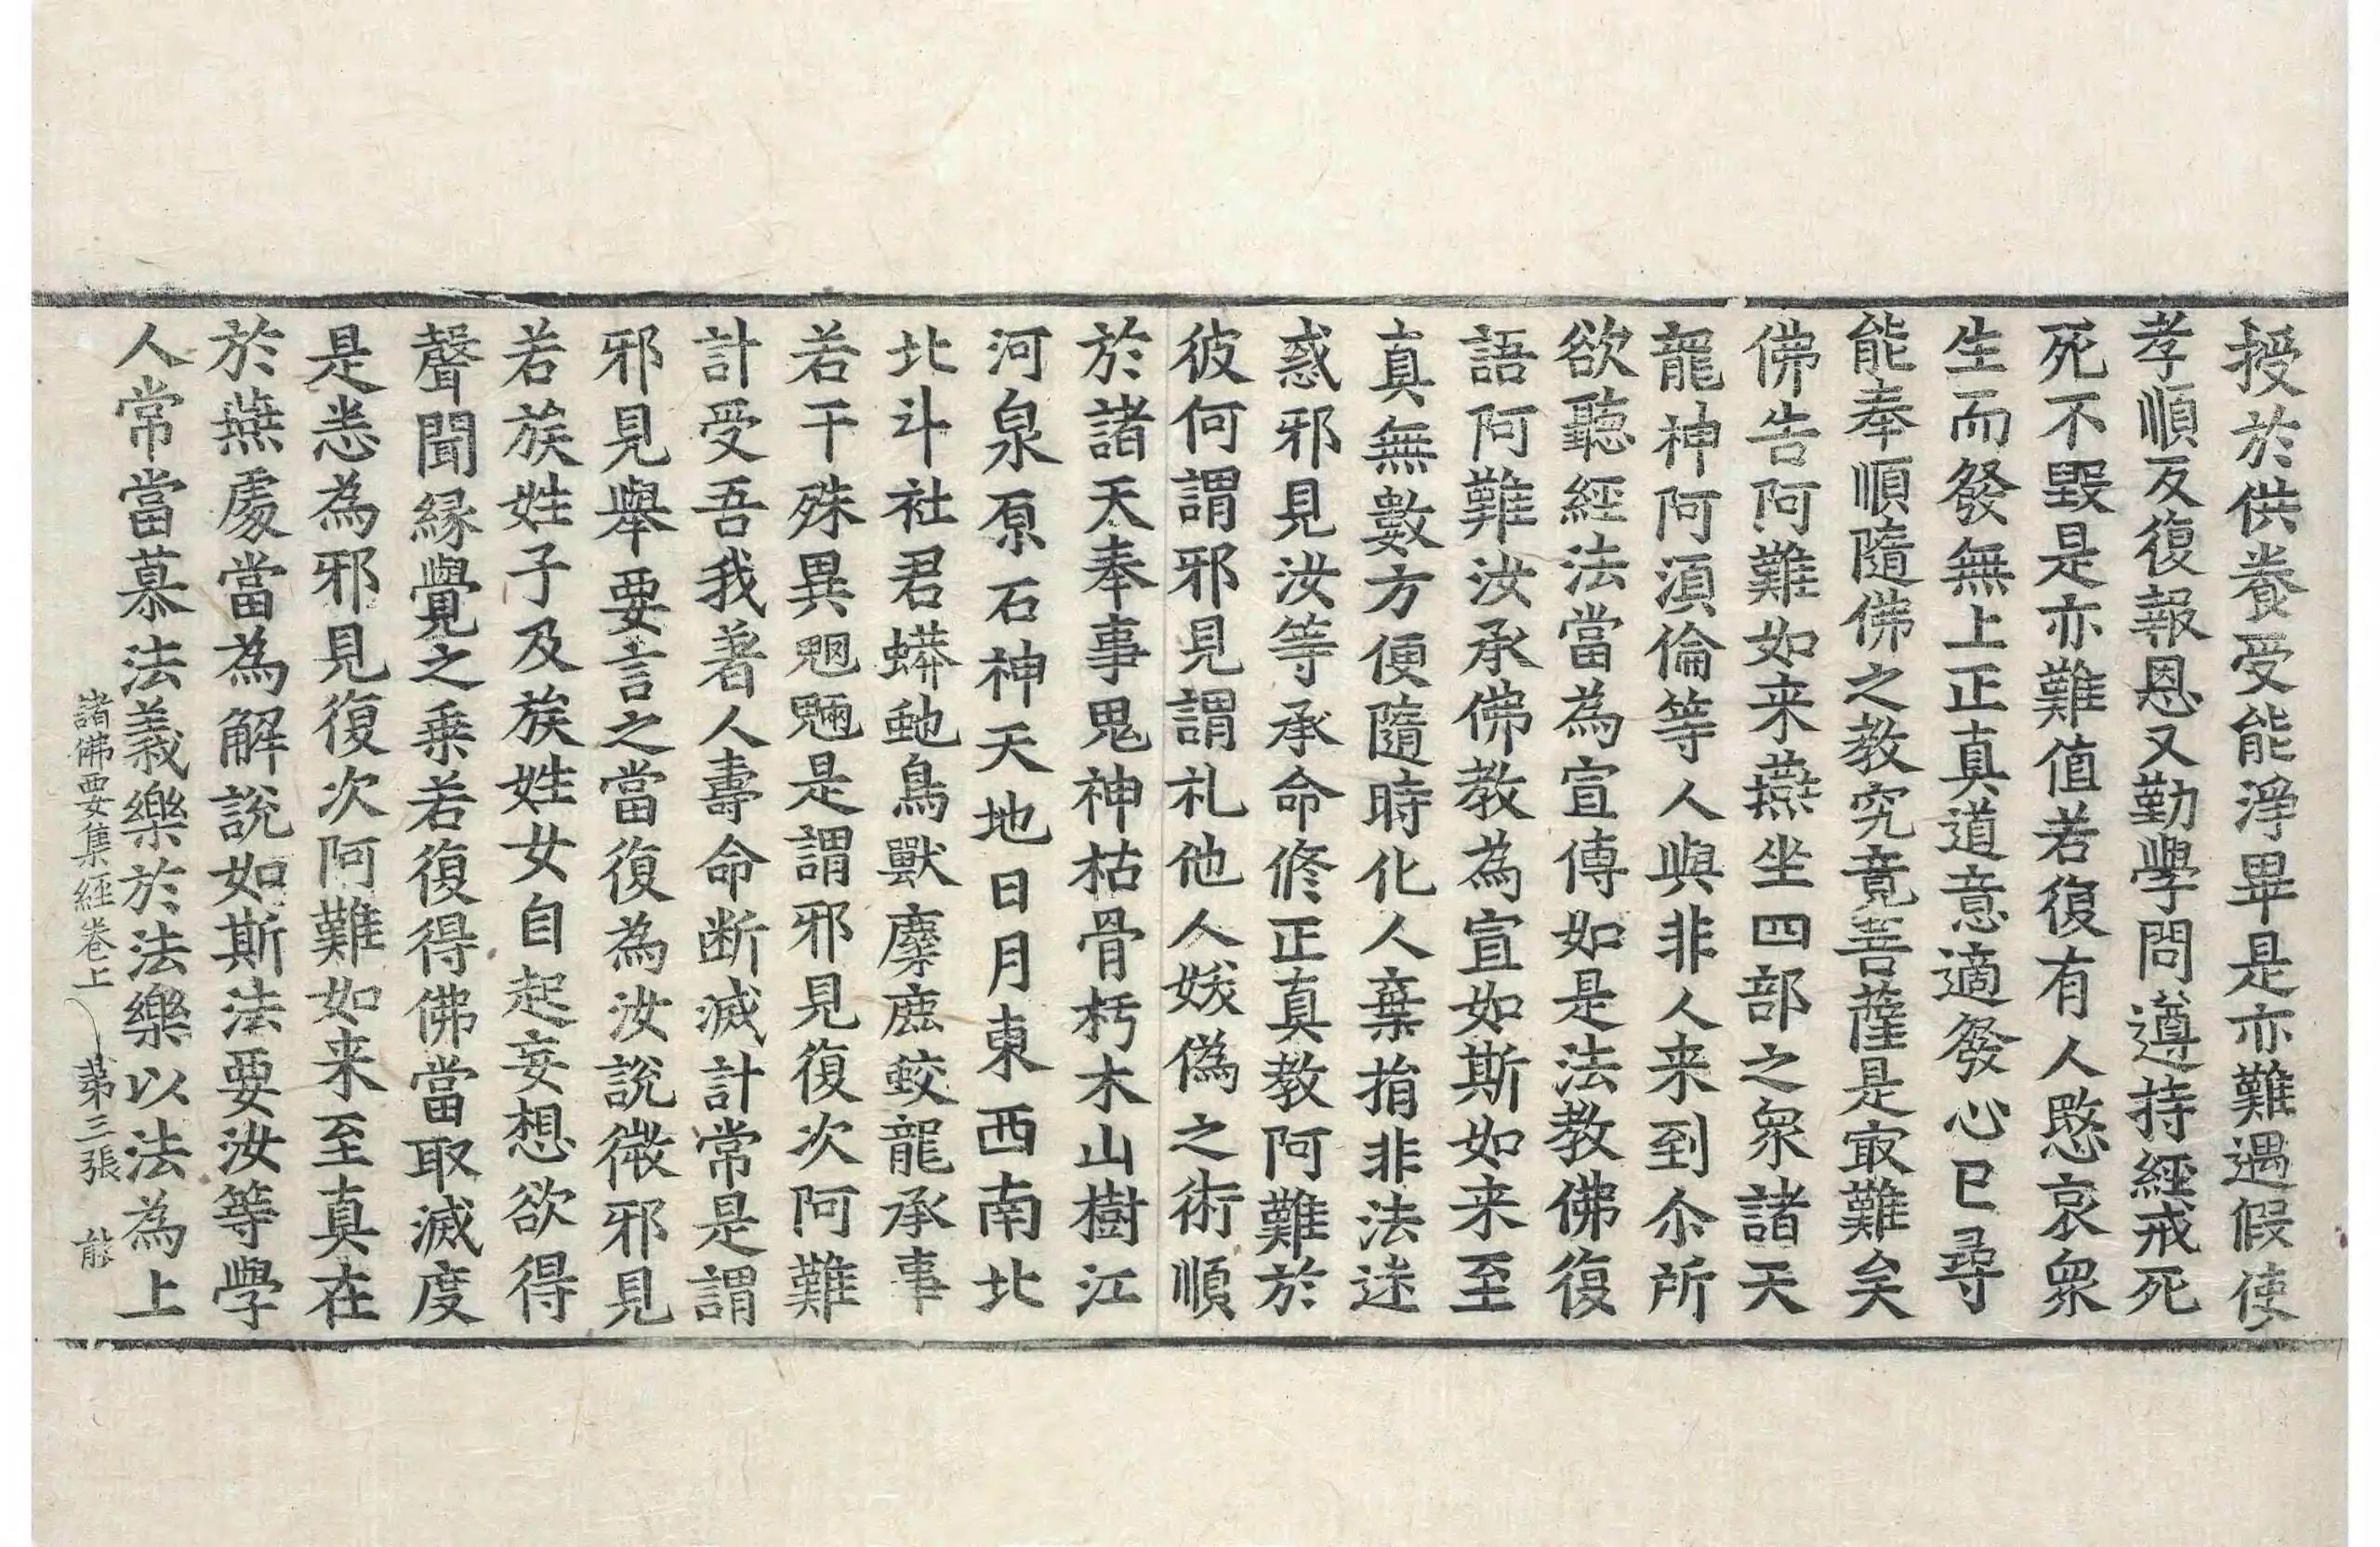 授於供養受能淨畢是亦難遇假使
孝順反復報恩又勤學問遵持經戒死
死不毀是亦難值若復有人愍哀衆
生而發無上正真道意適發心已尋
能奉順隨佛之教究竟菩薩是㝡難矣
佛告阿難如来燕坐四部之衆諸天
龍神阿湏倫等人與非人来到尒所
欲聽經法當為宣傳如是法教佛復
語阿難汝承佛教為宣如斯如来至
真無數方便隨時化人棄捐非法迷
惑邪見汝等承命修正真教阿難於
彼何謂邪見謂礼他人妖偽之術順
於諸天奉事鬼神枯骨朽木山樹江
河泉原石神天地日月東西南北
北斗社君蟒虵鳥獸麋鹿蛟龍承事
若干殊異魍魎是謂邪見復次阿難
計受吾我著人壽命断滅計常是謂
邪見舉要言之當復為汝說微邪見
若族姓子及族姓女自起妄想欲得
聲聞緣覺之乗若復得佛當取滅度
是悉為邪見復次阿難如来至真在
於燕處當為解說如斯法要汝等學
人常當慕法義樂於法樂以法為上
諸佛要集經卷上 第三張